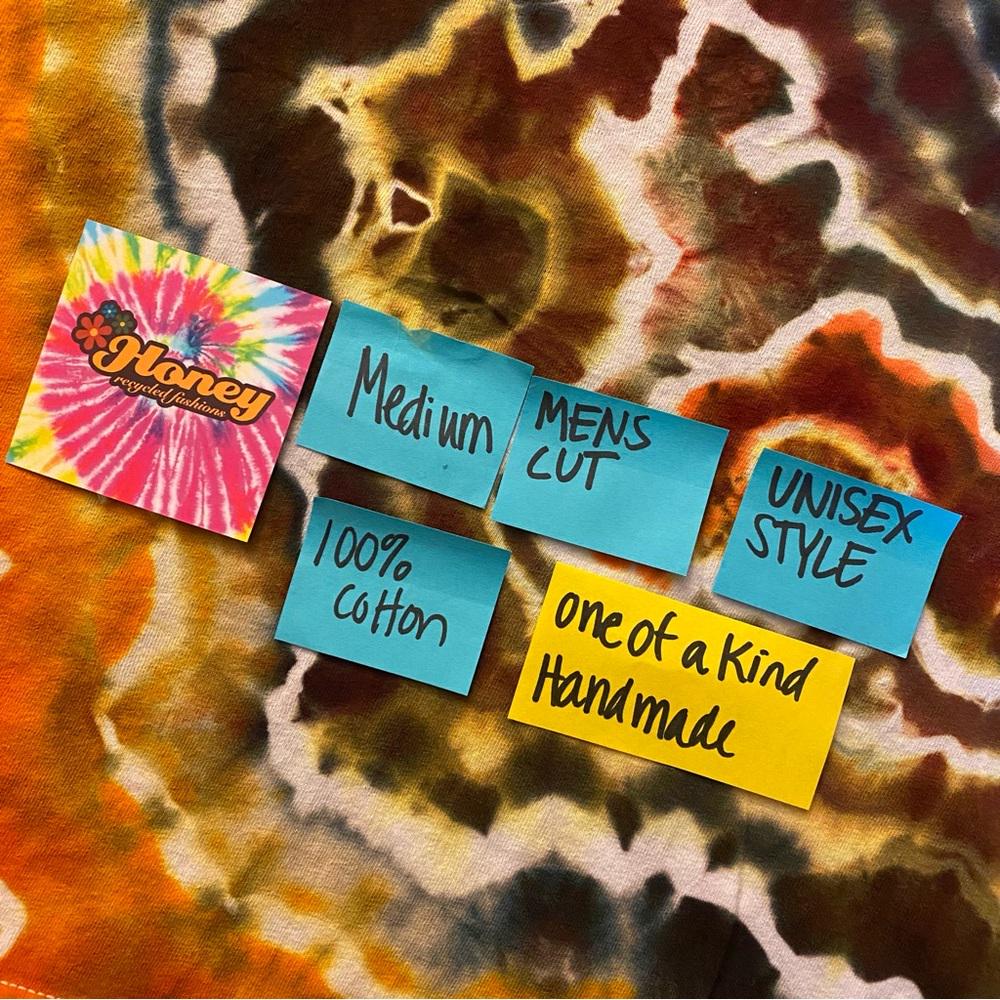 Honey
recycled fashions
Medium
MENS
CUT
UNISEX
STYLE
100%
Cotton
one of a Kind
Handmade